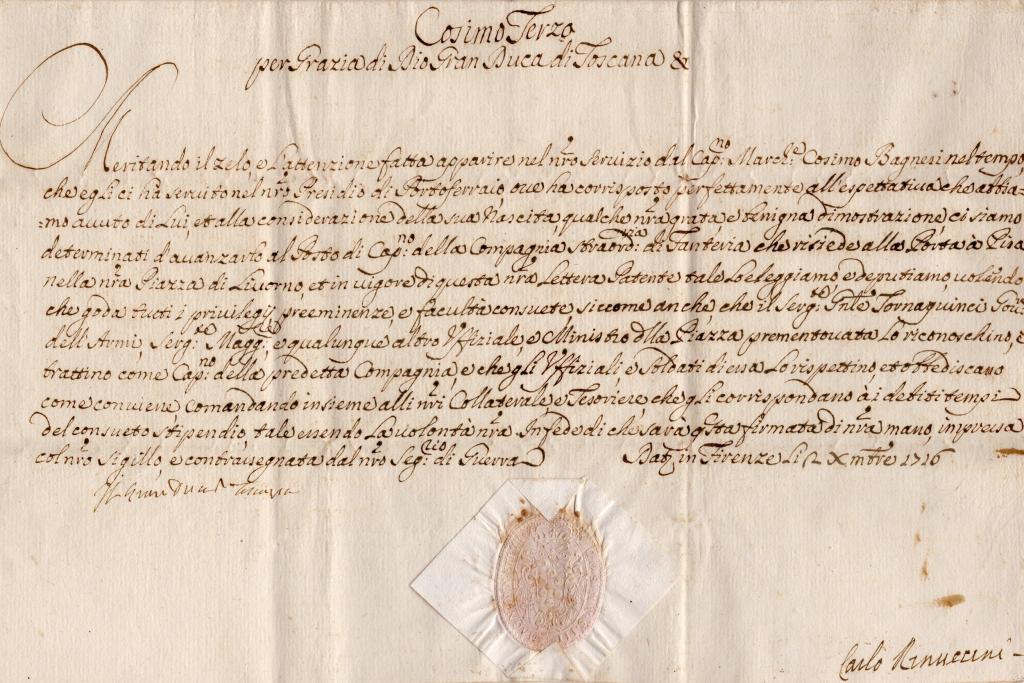 Cosimo Terzo
per Grazia di Dio Gran Duca di Toscana &
Meritando il zelo, e l'attenzione fatta apparire nel nr̃o servizio dal Cap:no March:e Cosimo Bagnesi nel tempo,
che egli ci hà servito nel nr̃o Presidio di Portoferraio, ove ha corrisposto perfettamente all'espettativa, che abbia-
=mo avuto di Lui, et alla considerazione della sua Nascita, qualche nr̃a grata, e benigna dimostrazione, ci siamo
determinati d'avanzarlo al Posto di Cap:no della Compagnia straord:ria di Fanteria che risiede alla Porta à Pisa
nella nr̃a Piazza di Livorno, et in vigore di questa nr̃a Lettera Patente tale lo eleggiamo, e deputiamo, volendo
che goda tutti i privilegij, preeminenze, e facultà consuete, siccome anche, che il Serg:te Gñle Tornaquinci Gov:re
dell'Armi, Serg:te Magg:re e qualunque altro Uffiziale, e Ministro d̃lla Piazza prementovata Lo riconoschino, e
trattino come Cap:no della predetta Compagnia, e che gli Uffiziali, e Soldati di essa Lo rispettino, et obbediscano
come conviene, Comandando insieme alli nr̃i Collaterale, e Tesoriere, che gli corrispondano à i debiti tempi
del consueto stipendio, tale essendo La volontà nr̃a. In fede di che sarà q̃sta firmata di nr̃a mano, impressa
col nr̃o Sigillo, e contrassegnata dal nr̃o Seg:rio di Guerra. Dat: in Firenze Li 12 Xmbre 1716
Il Gran Duca di Toscana
Carlo Rinuccini